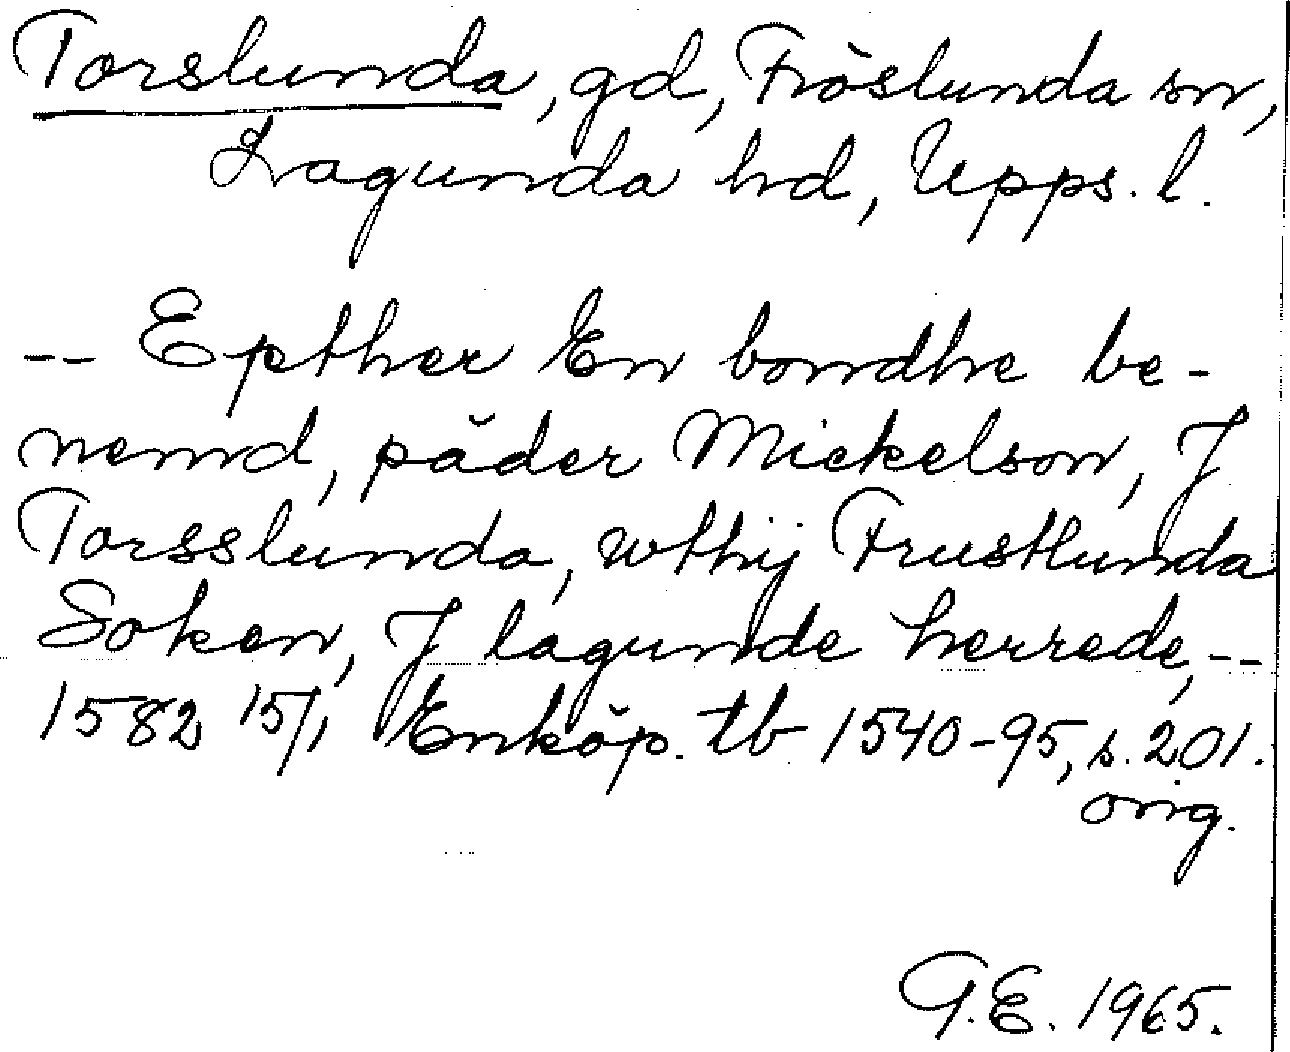 Torslunda, gd, Fröslunda sn,
Lagunda hd, Upps. l.
-- Epther En bondhe be-
nemd, päder Mickelson, J
Torsslunda, wthij Frustlunda
Soken, J lagunde herrede, --
1582 15/1 Enköp. tb 1540-95, s. 201.
orig.
G.E. 1965.